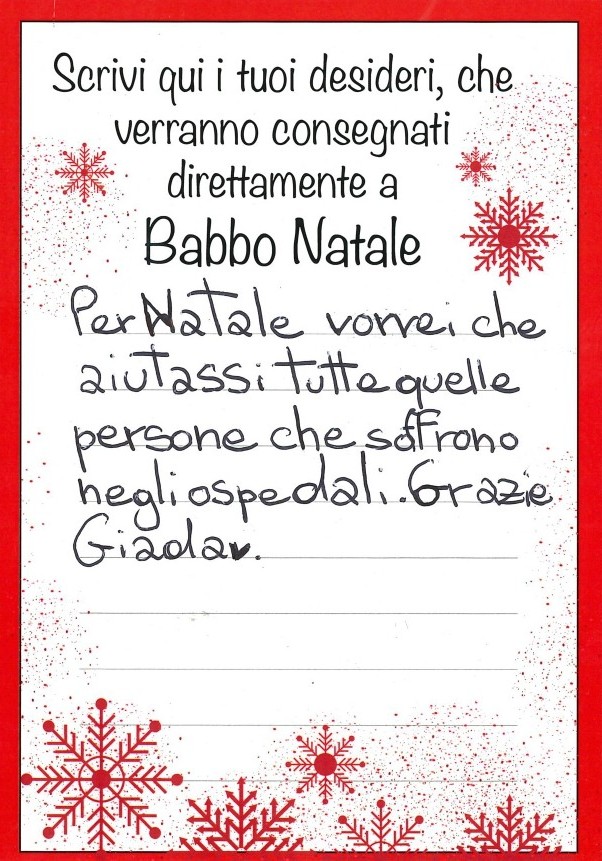 Scrivi qui i tuoi desideri, che
verranno consegnati
direttamente a
Babbo Natale
Per Natale vorrei che
aiutassi tutte quelle
persone che soffrono
negli ospedali. Grazie
Giada♥.